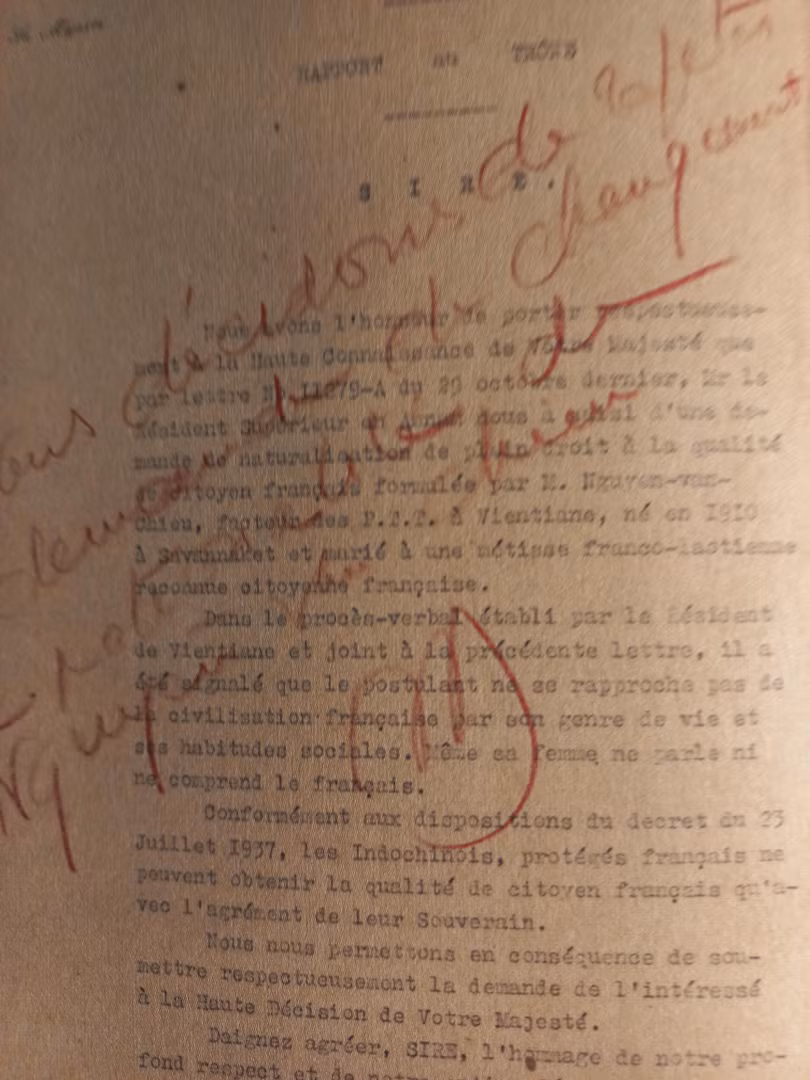 RAPPORT au TRÔNE
SIRE.
Nous avons l'honneur de porter respectueuse-
ment à la Haute Connaissance de Votre Majesté que
par lettre No.11279-A du 29 octobre dernier, Mr le
Résident Supérieur en Annam nous a saisi d'une de-
mande de naturalisation de plein droit à la qualité
de citoyen français formulée par M. Nguyen-van-
chieu, facteur des P.T.T. à Vientiane, né en 1910
à Savannaket et marié à une métisse franco-laotienne
reconnue citoyenne française.
Dans le procès-verbal établi par le Résident
de Vientiane et joint à la précédente lettre, il a
été signalé que le postulant ne se rapproche pas de
la civilisation française par son genre de vie et
ses habitudes sociales. Même sa femme ne parle ni
ne comprend le français.
Conformément aux dispositions du decret du 23
Juillet 1937, les Indochinois, protégés français ne
peuvent obtenir la qualité de citoyen français qu'a-
vec l'agrément de leur Souverain.
Nous nous permettons en conséquence de sou-
mettre respectueusement la demande de l'intéressé
à la Haute Décision de Votre Majesté.
Daignez agréer, SIRE, l'hommage de notre pro-
fond respect et de notre
décidons de rejeter
demande de changement